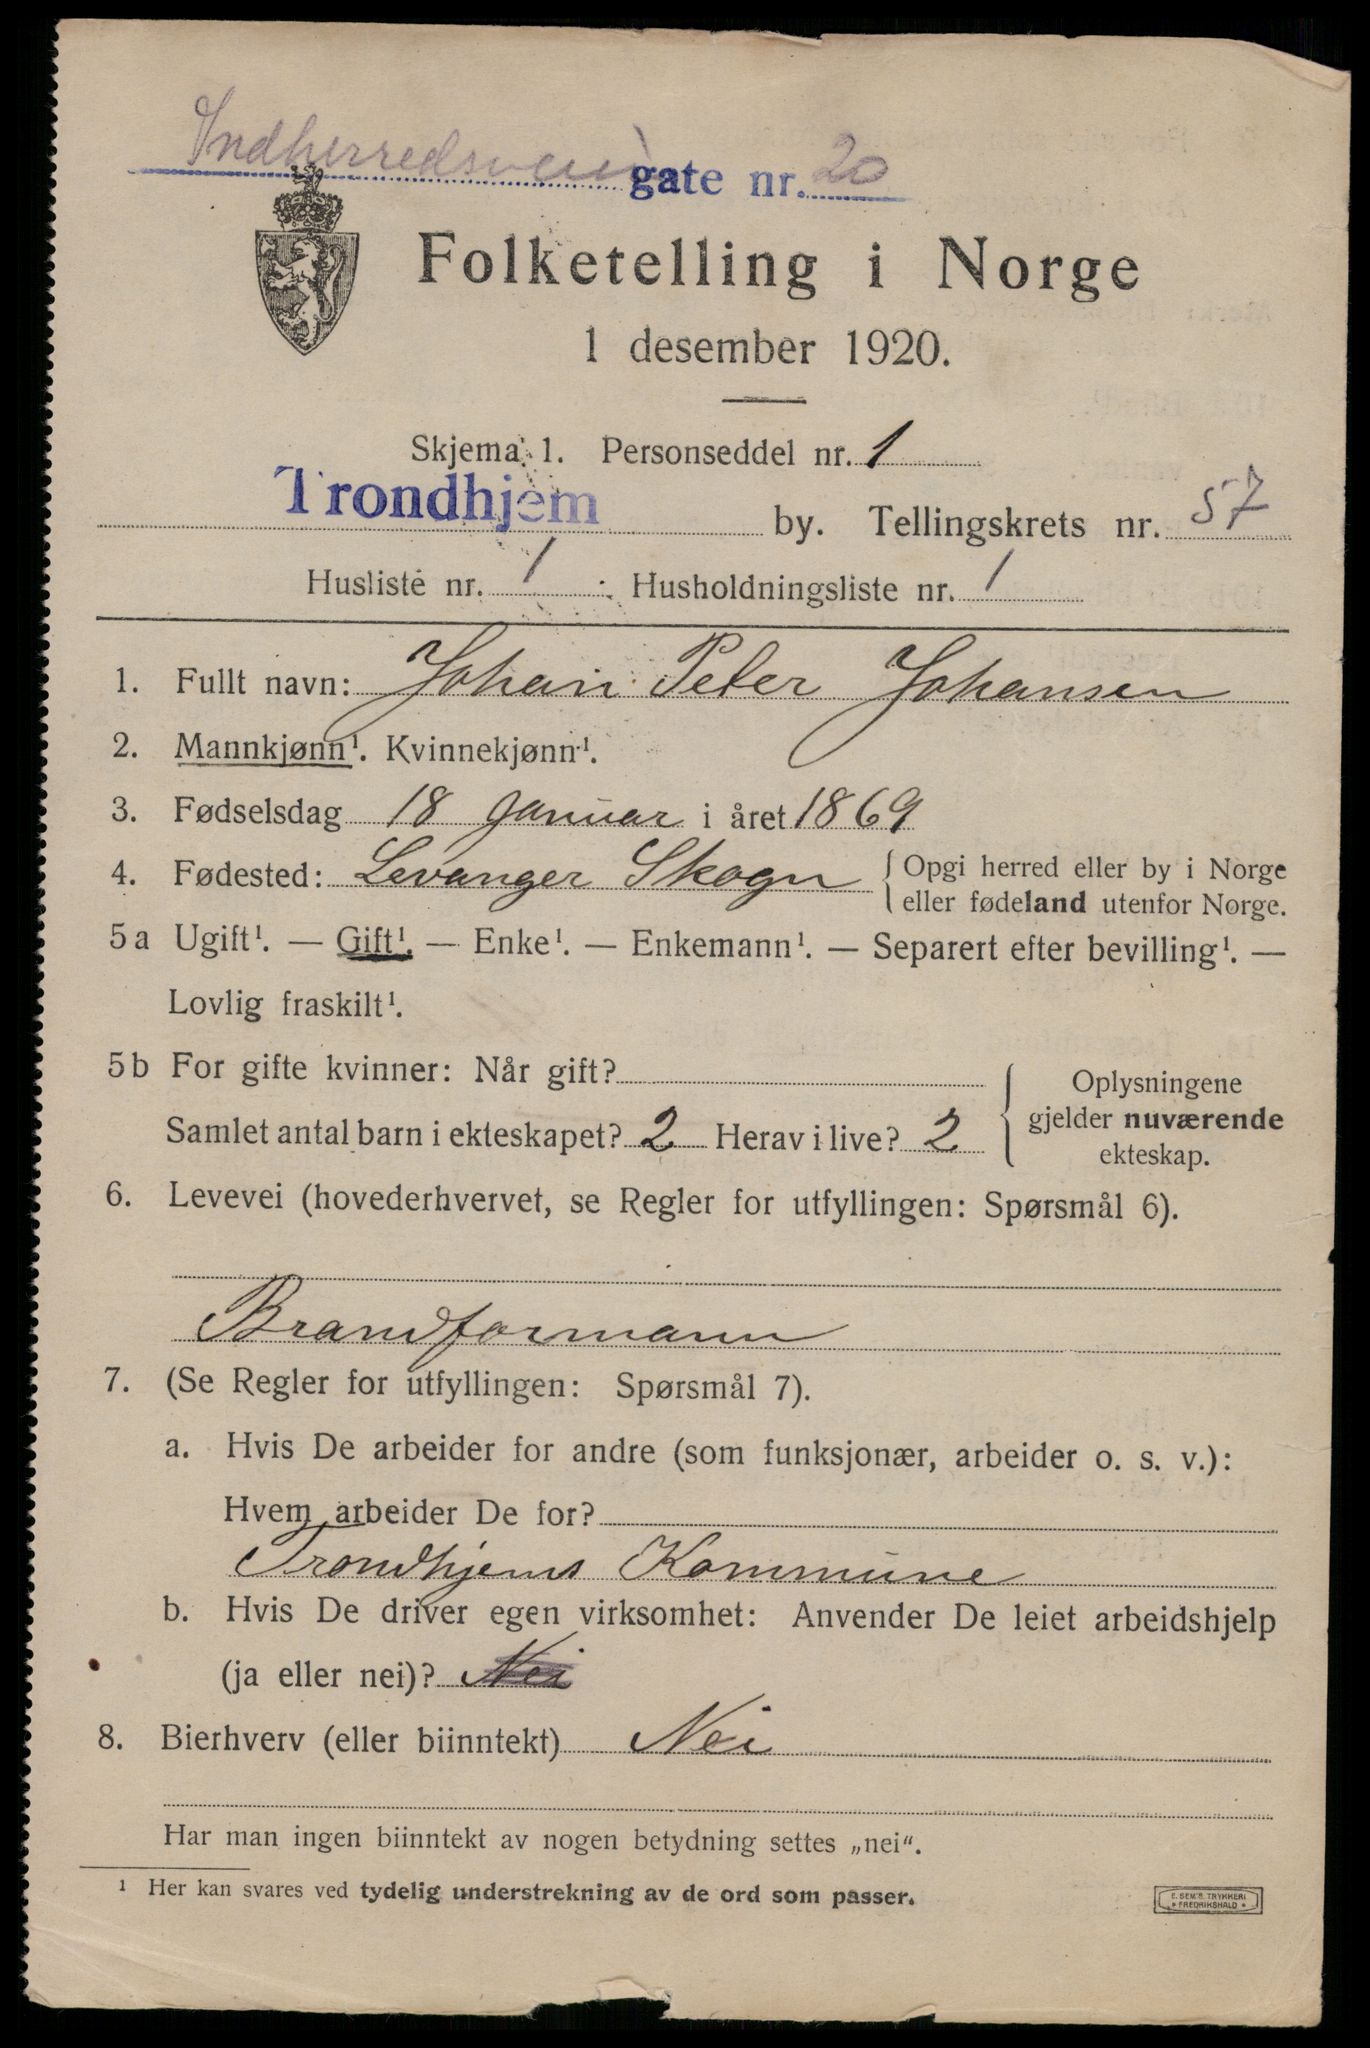 Indherredsveien gate nr. 20
Folketelling i Norge
1 desember 1920.
Skjema 1. Personseddel nr. 1
Trondhjem by. Tellingskrets nr. 57
Husliste nr. 1 : Husholdningsliste nr. 1
1. Fullt navn: Johan Peter Johansen
2. Mannkjønn¹. Kvinnekjønn¹.
3. Fødselsdag 18 Januar i året 1869
4. Fødested: Levanger Skogn { Opgi herred eller by i Norge
eller fødeland utenfor Norge.
5a Ugift¹. — Gift¹. — Enke¹. — Enkemann¹. — Separert efter bevilling¹. —
Lovlig fraskilt¹.
5b For gifte kvinner: Når gift?
Samlet antal barn i ekteskapet? 2 Herav i live? 2
{ Oplysningene
gjelder nuværende
ekteskap.
6. Levevei (hovederhvervet, se Regler for utfyllingen: Spørsmål 6).
Brandformann
7. (Se Regler for utfyllingen: Spørsmål 7).
a. Hvis De arbeider for andre (som funksjonær, arbeider o. s. v.):
Hvem arbeider De for?
Trondhjems Kommune
b. Hvis De driver egen virksomhet: Anvender De leiet arbeidshjelp
(ja eller nei)? Nei
8. Bierhverv (eller biinntekt) Nei
Har man ingen biinntekt av nogen betydning settes „nei“.
¹ Her kan svares ved tydelig understrekning av de ord som passer.
E. SEM'S TRYKKERI
FREDRIKSHALD